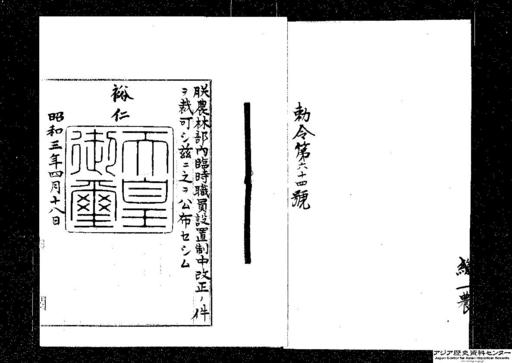 勅令第六十四號
朕農林部內臨時職員設置制中改正ノ件
ヲ裁可シ茲ニ之ヲ公布セシム
裕仁
天皇御璽
昭和三年四月十八日
アジア歴史資料センター
Japan Center for Asian Historical Records